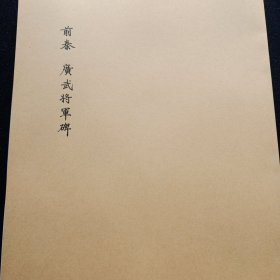 前秦 廣武將軍碑